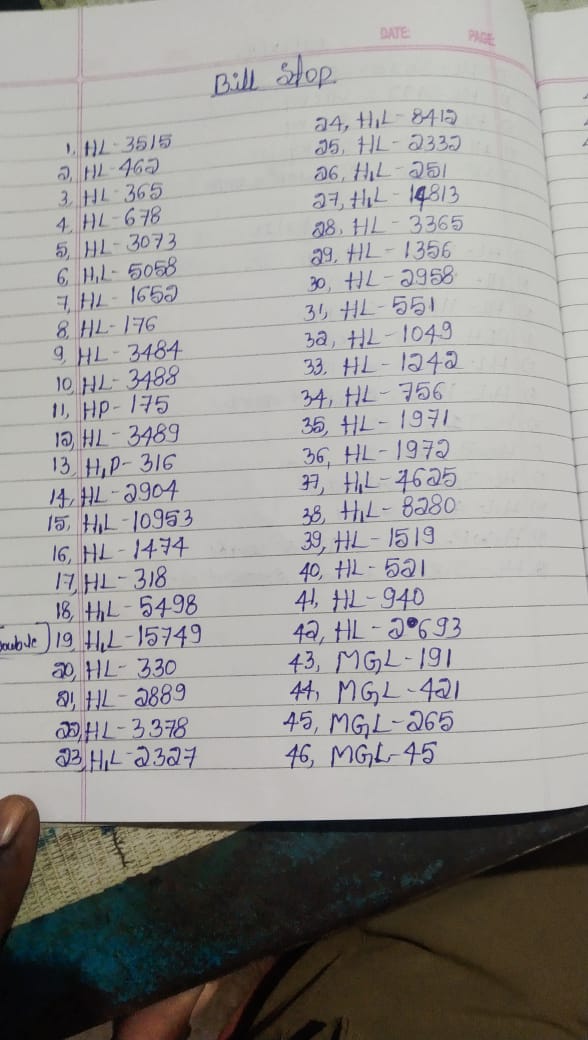 DATE: PAGE:
Bill Stop
1, HL-3515
2, HL-462
3, HL-365
4, HL-678
5, HL-3073
6, H,L-5058
7, HL-1652
8, HL-176
9, HL-3484
10, HL-3488
11, HP-175
12, HL-3489
13, H,P-316
14, HL-2904
15, H,L-10953
16, HL-1474
17, HL-318
18, H,L-5498
19, H,L-15749
20, HL-330
21, HL-2889
22, HL-3378
23, H,L-2327
24, H,L-8412
25, HL-2332
26, H,L-251
27, H,L-14813
28, HL-3365
29, HL-1356
30, HL-2958
31, HL-551
32, HL-1049
33, HL-1242
34, HL-756
35, HL-1971
36, HL-1972
37, H,L-4625
38, H,L-8280
39, HL-1519
40, HL-521
41, HL-940
42, HL-2693
43, MGL-191
44, MGL-421
45, MGL-265
46, MGL-45